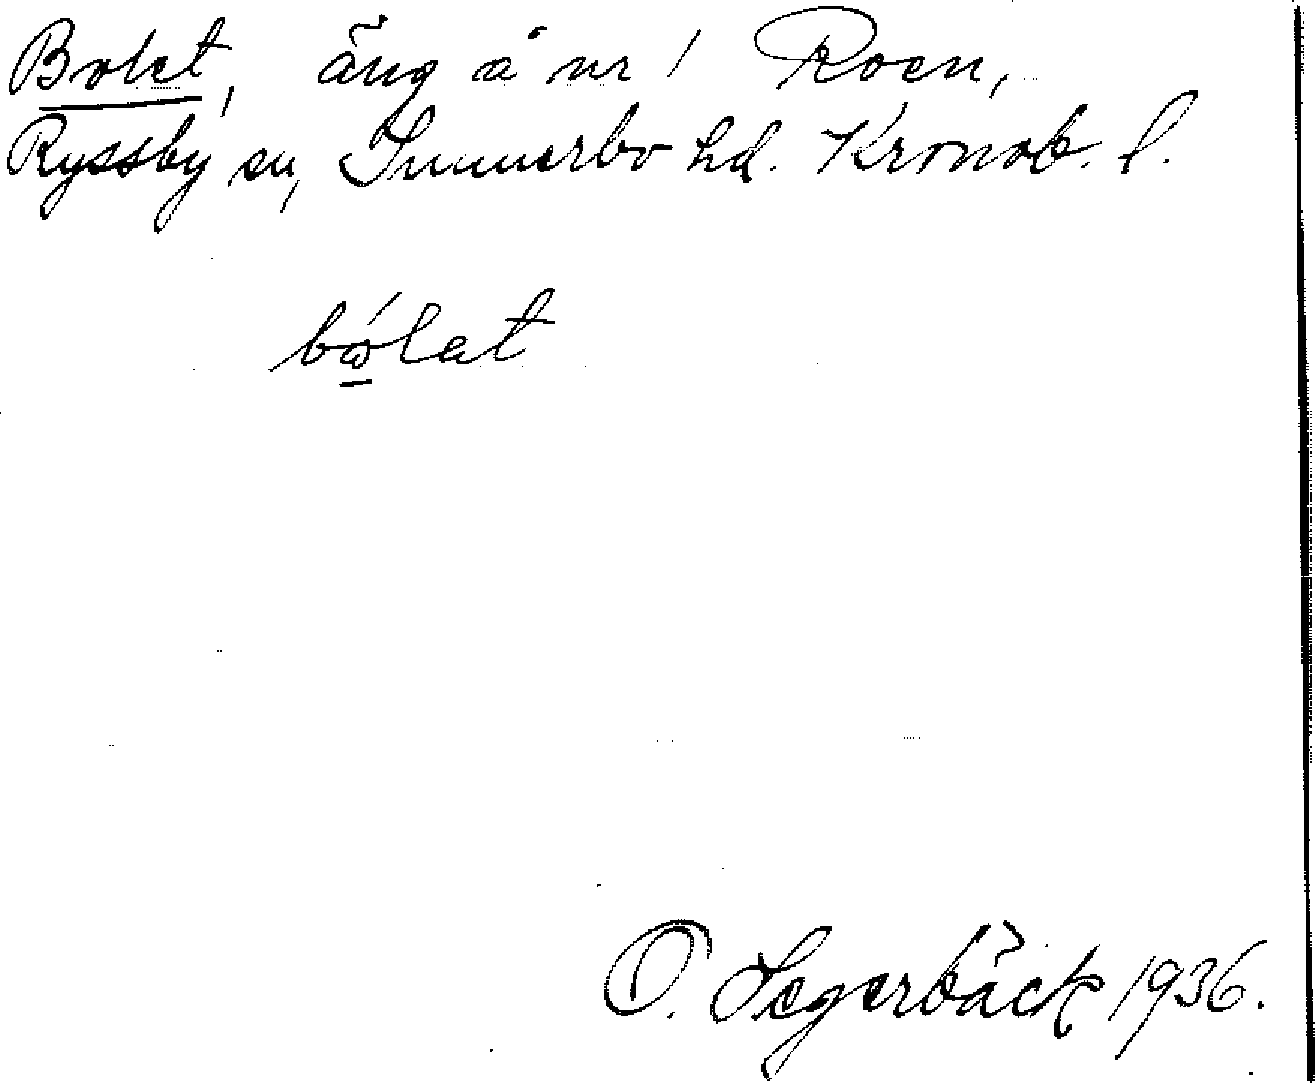 Bolet, äng å nr 1 Roen,
Ryssby sn, Sunnerbo hd. Kronob. l.
bólat
O. Segerbäck 1936.